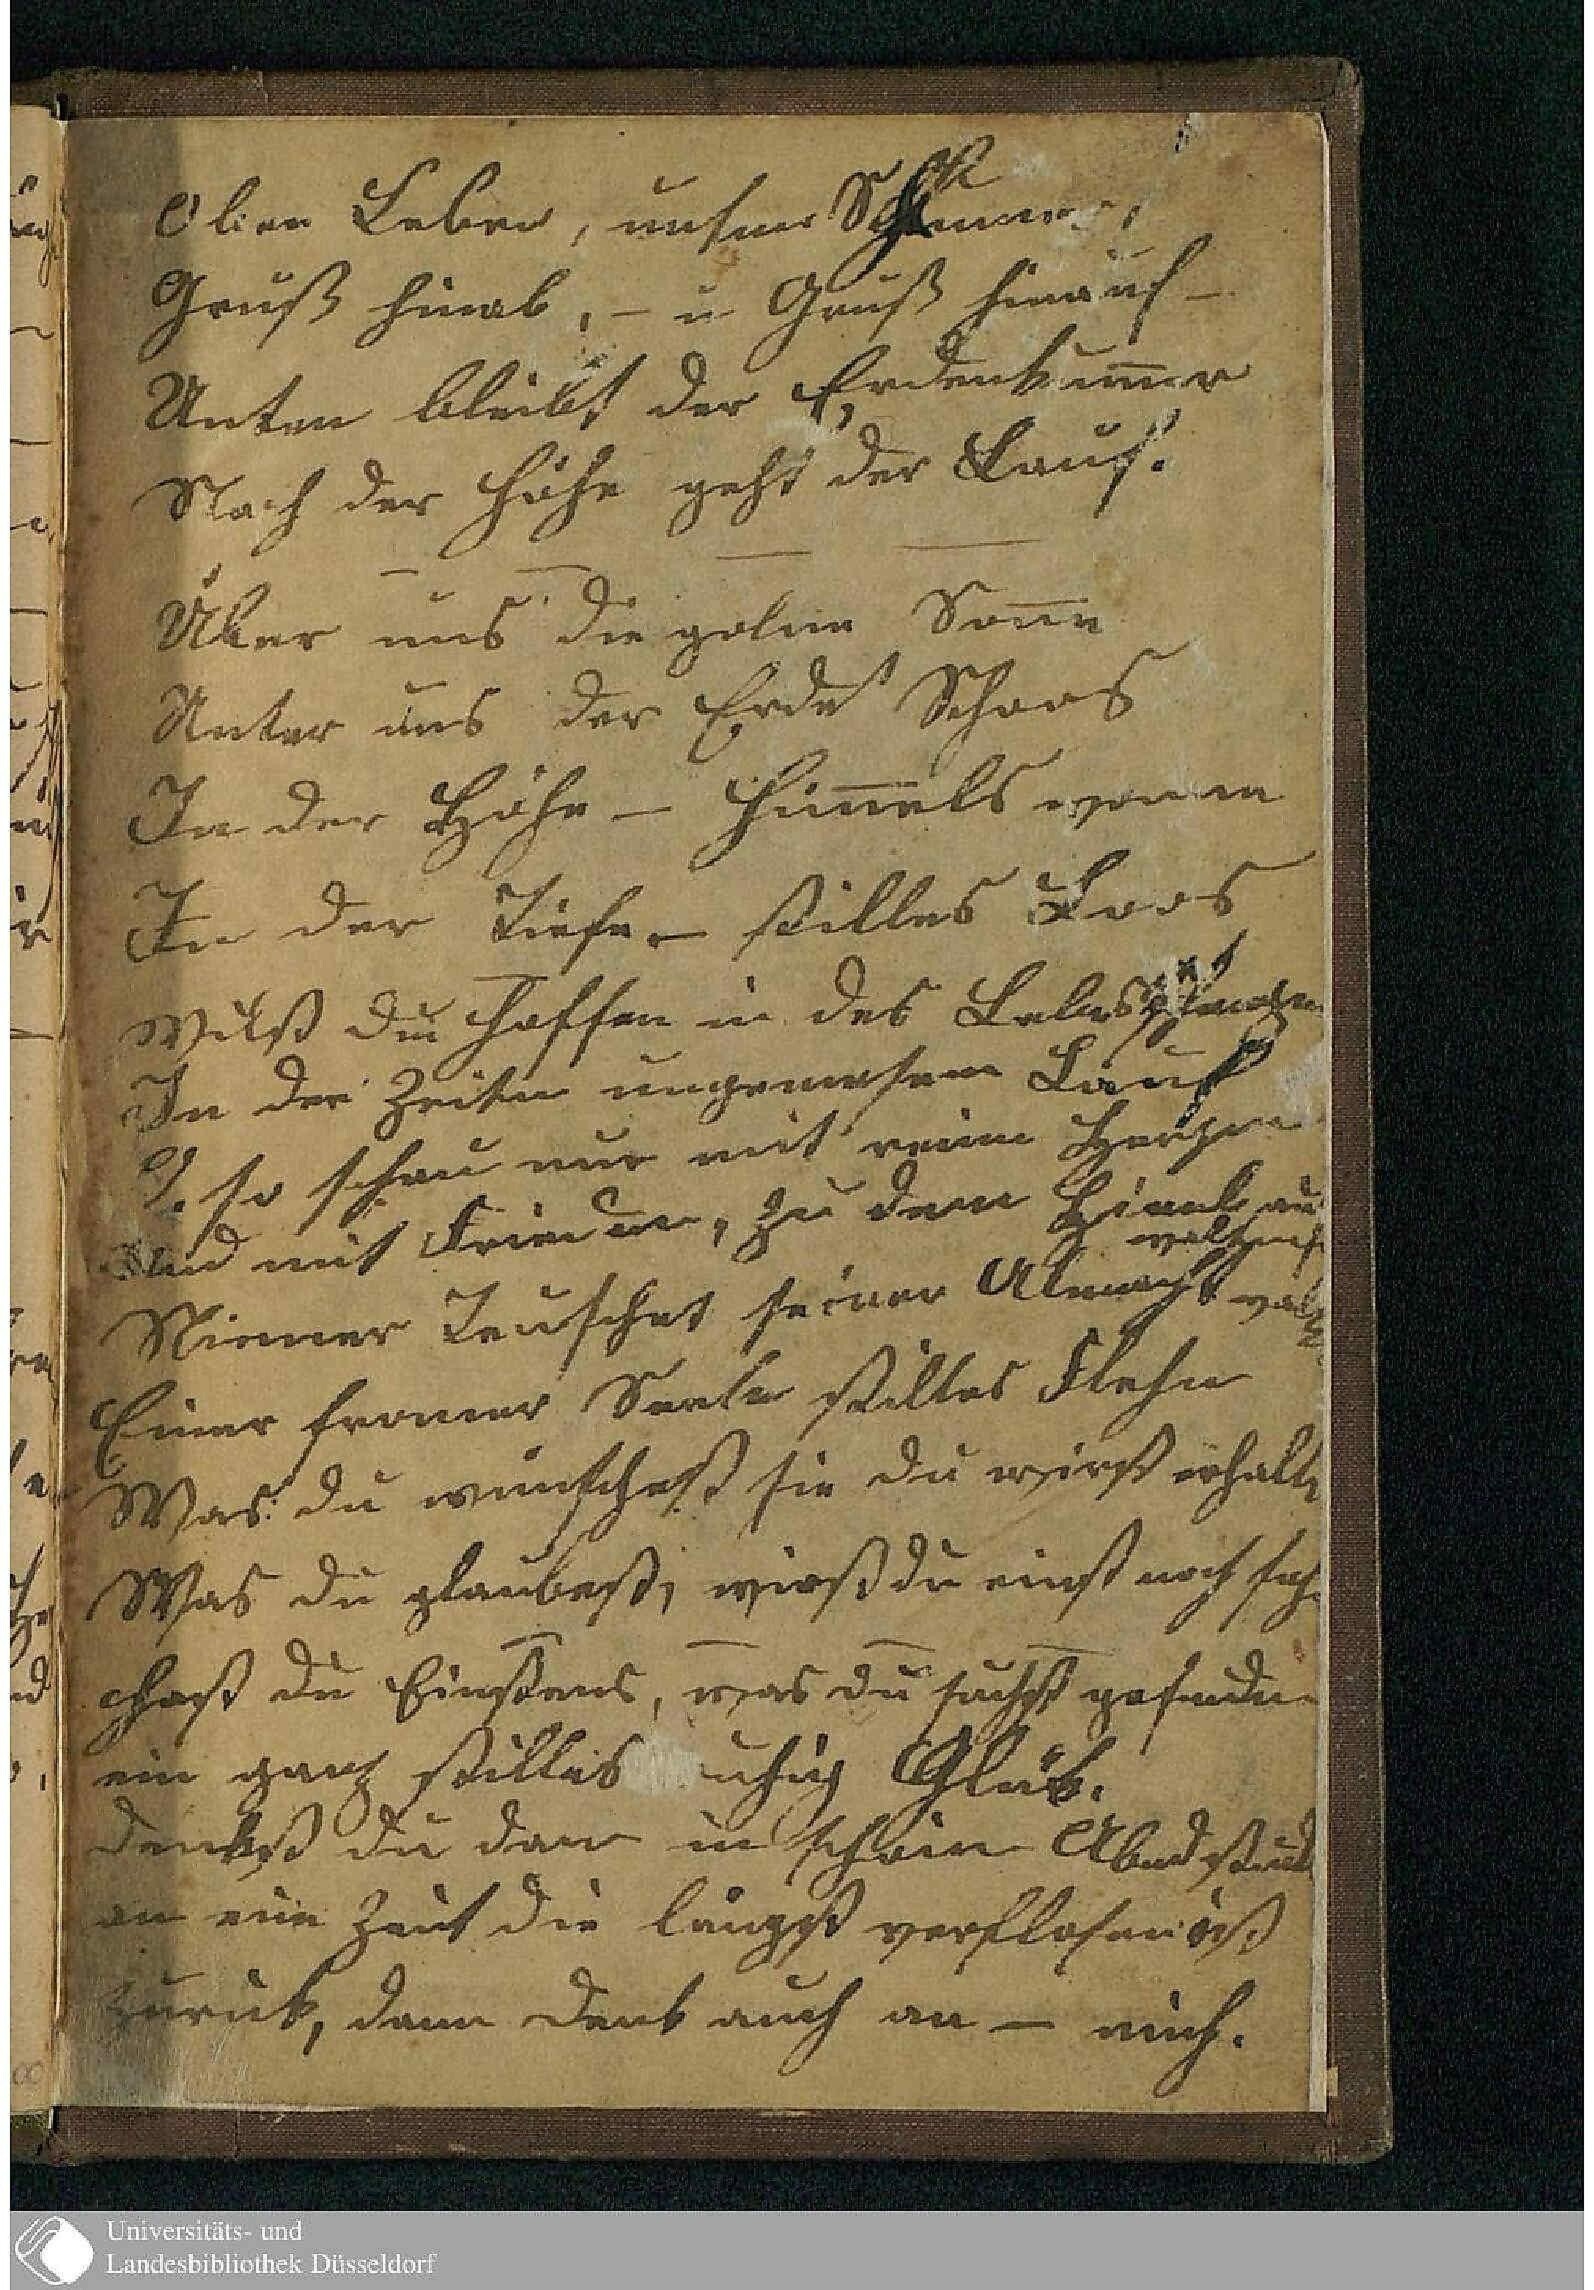 Oben Leben, unten
Gruß hinab, – u Gruß hinauf –
Unten bleibt der Erdenkum̅er
Nach der Höhe geht der Lauf.
Über uns die goldne Son̅e
Unter uns der Erde Schoos
In der Höhe – Him̅els wonne
In der Tiefe – stilles Loos
Wilst du hoffen in des Lebens
In der Zeiten ungemesenen Lauf
O. so schau nur mit reinen Herzen
Und mit Frieden, zu dem
Nimmer Teuschet seiner Almacht
Einer fromer Seele stilles Flehn
Was du wünschest sie du wirst erhalte
Was du glaubest, wirst du einst noch seh
Hast du Einstens, was du suchst gefunden
ein ganz stilles uhig Glük.
denkst du dan in schöner Abendstund
an eine Zeit die längst verflosen ist
zurük, dann denk auch an – mich.
Universitäts- und
Landesbibliothek Düsseldorf